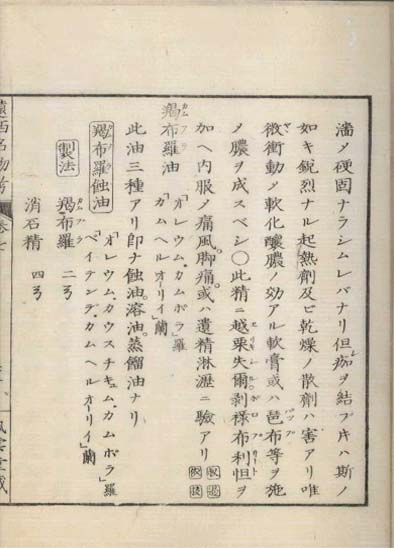 メ硬固ナラシムレバナリ但痂ヲ結ブキハ斯ノ
如キ鋭烈ナル起熱劑及ビ乾燥ノ散劑ハ害アリ唯
微衝動メ軟化釀膿ノ効アル軟膏或ハ布等ヲ施
メ膿ヲ成スベシ〇此精ニ越栗失爾剥樣布利怛ヲ
加ヘ内服メ痛風。脚痛。或ハ遺精淋瀝ニ驗アリ
羯布羅油
「オレウム。カムポラ」羅
「カムヘルオーリイ」蘭
此油三種アリ即チ蝕油。溶油。蒸餾油ナリ
羯布羅蝕油
「オレウム。カウスチキュム。カムポラ」羅
「ベイテンデ。カムヘルオーリイ」蘭
製法 羯布羅 二
消石精 四
遠西名物考 卷七